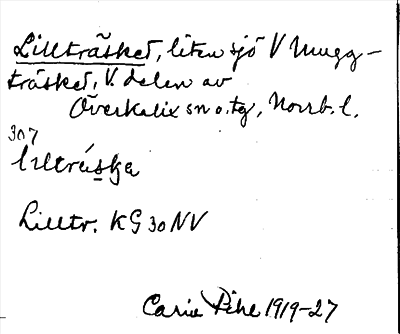 Lillträsket, liten sjö V Mugg-
träsket, V. delen av
Överkalix sn o. tg, Norrb. l.
307
Lilltr. KG 30 NV
Carin Pihl 1919-27